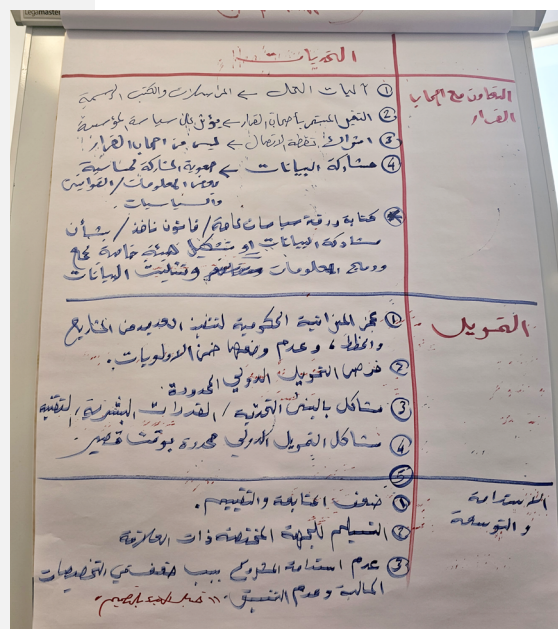 Legamaster
التحديات
التعاون مع اصحاب
القرار
① اليات العمل ← المراسلات والكتب الرسمية
② التغير المستمر بأصحاب القرار ← يؤثر على سياسة المؤسسة
③ نقطة الاتصال ← ليس من اصحاب القرار
④ مشاركة البيانات ← صعوبة المشاركة لحساسية
بعض المعلومات / القوانين
والسياسات
كتابة ورقة سياسات عامة / قانون نافذ / بشأن
مشاركة البيانات او تشكيل هيئة خاصة
المعلومات البيانات
التمويل
① عجز الميزانية الحكومية لتنفيذ العديد من المشاريع
والخطط، وعدم وضعها ضمن الاولويات.
② فرص التمويل الدولي المحدودة
③ مشاكل بالبنى التحتية / القدرات البشرية / التقنية
④ مشاكل التمويل الدولي محددة بوقت قصير
⑤
الاستدامة
والتوسعة
① ضعف المتابعة والتقييم.
② التسليم للجهة المختصة ذات العلاقة
③ عدم استدامة المشروع بسبب ضعف في التخصيصات
المالية وعدم التنسيق.